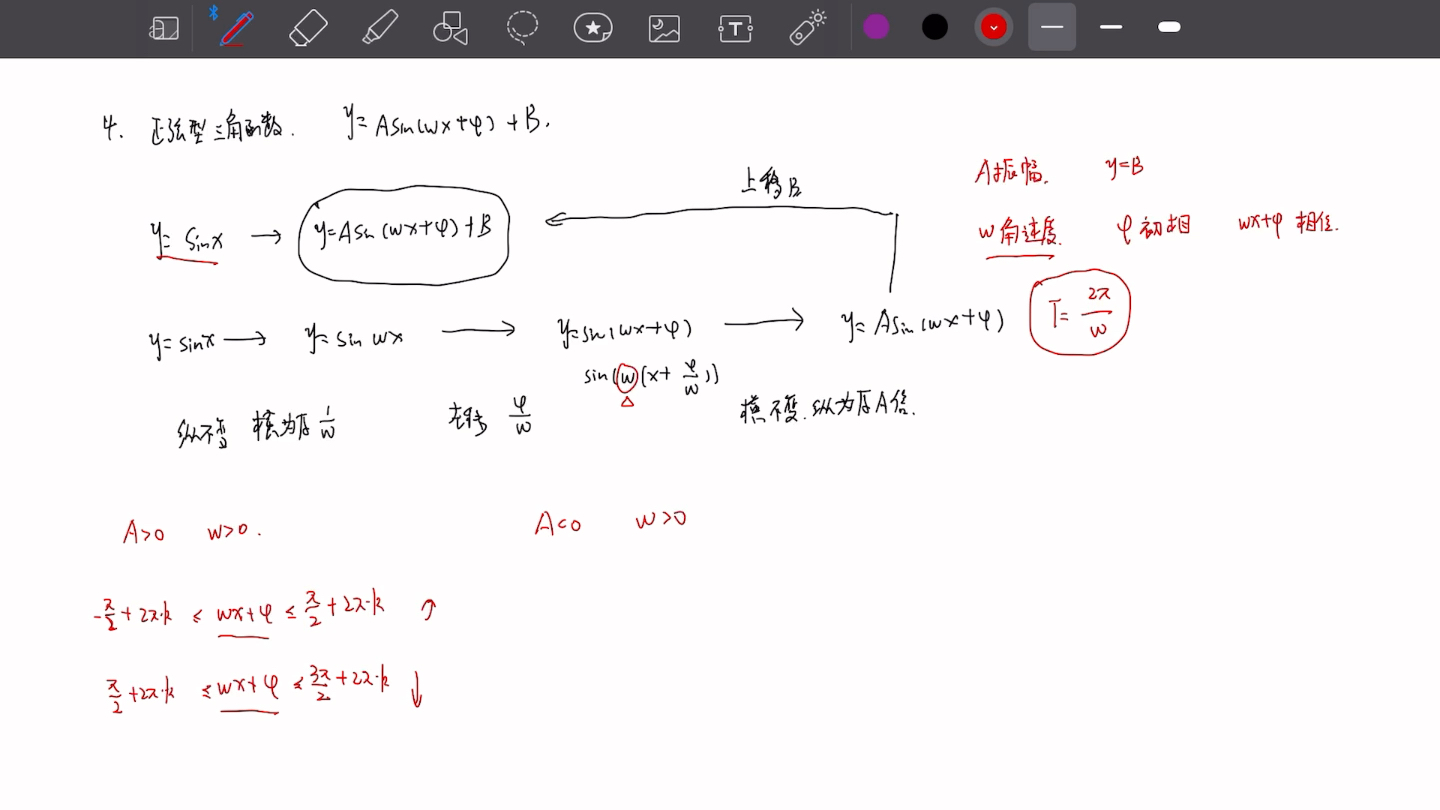 4. 正弦型三角函数. y=Asin(wx+φ)+B.
上移B
A振幅. y=B
y=sinx → y=Asin(wx+φ)+B
w角速度. φ初相 wx+φ 相位.
y=sinx → y=sin wx → y=sin(wx+φ) → y=Asin(wx+φ)
T=2π/w
sin(w(x+φ/w))
纵不变 横为原1/w 左移 φ/w 横不变.纵为原A倍.
A>0 w>0. A<0 w>0
-π/2+2π·k ≤ wx+φ ≤ π/2+2π·k ↑
π/2+2π·k ≤ wx+φ ≤ 3π/2+2π·k ↓
T